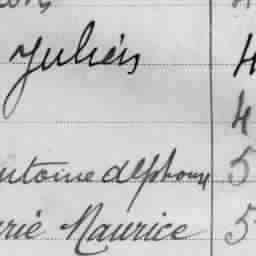 Julien 4
4
ntoine Alphonse 5
rie Maurice 5